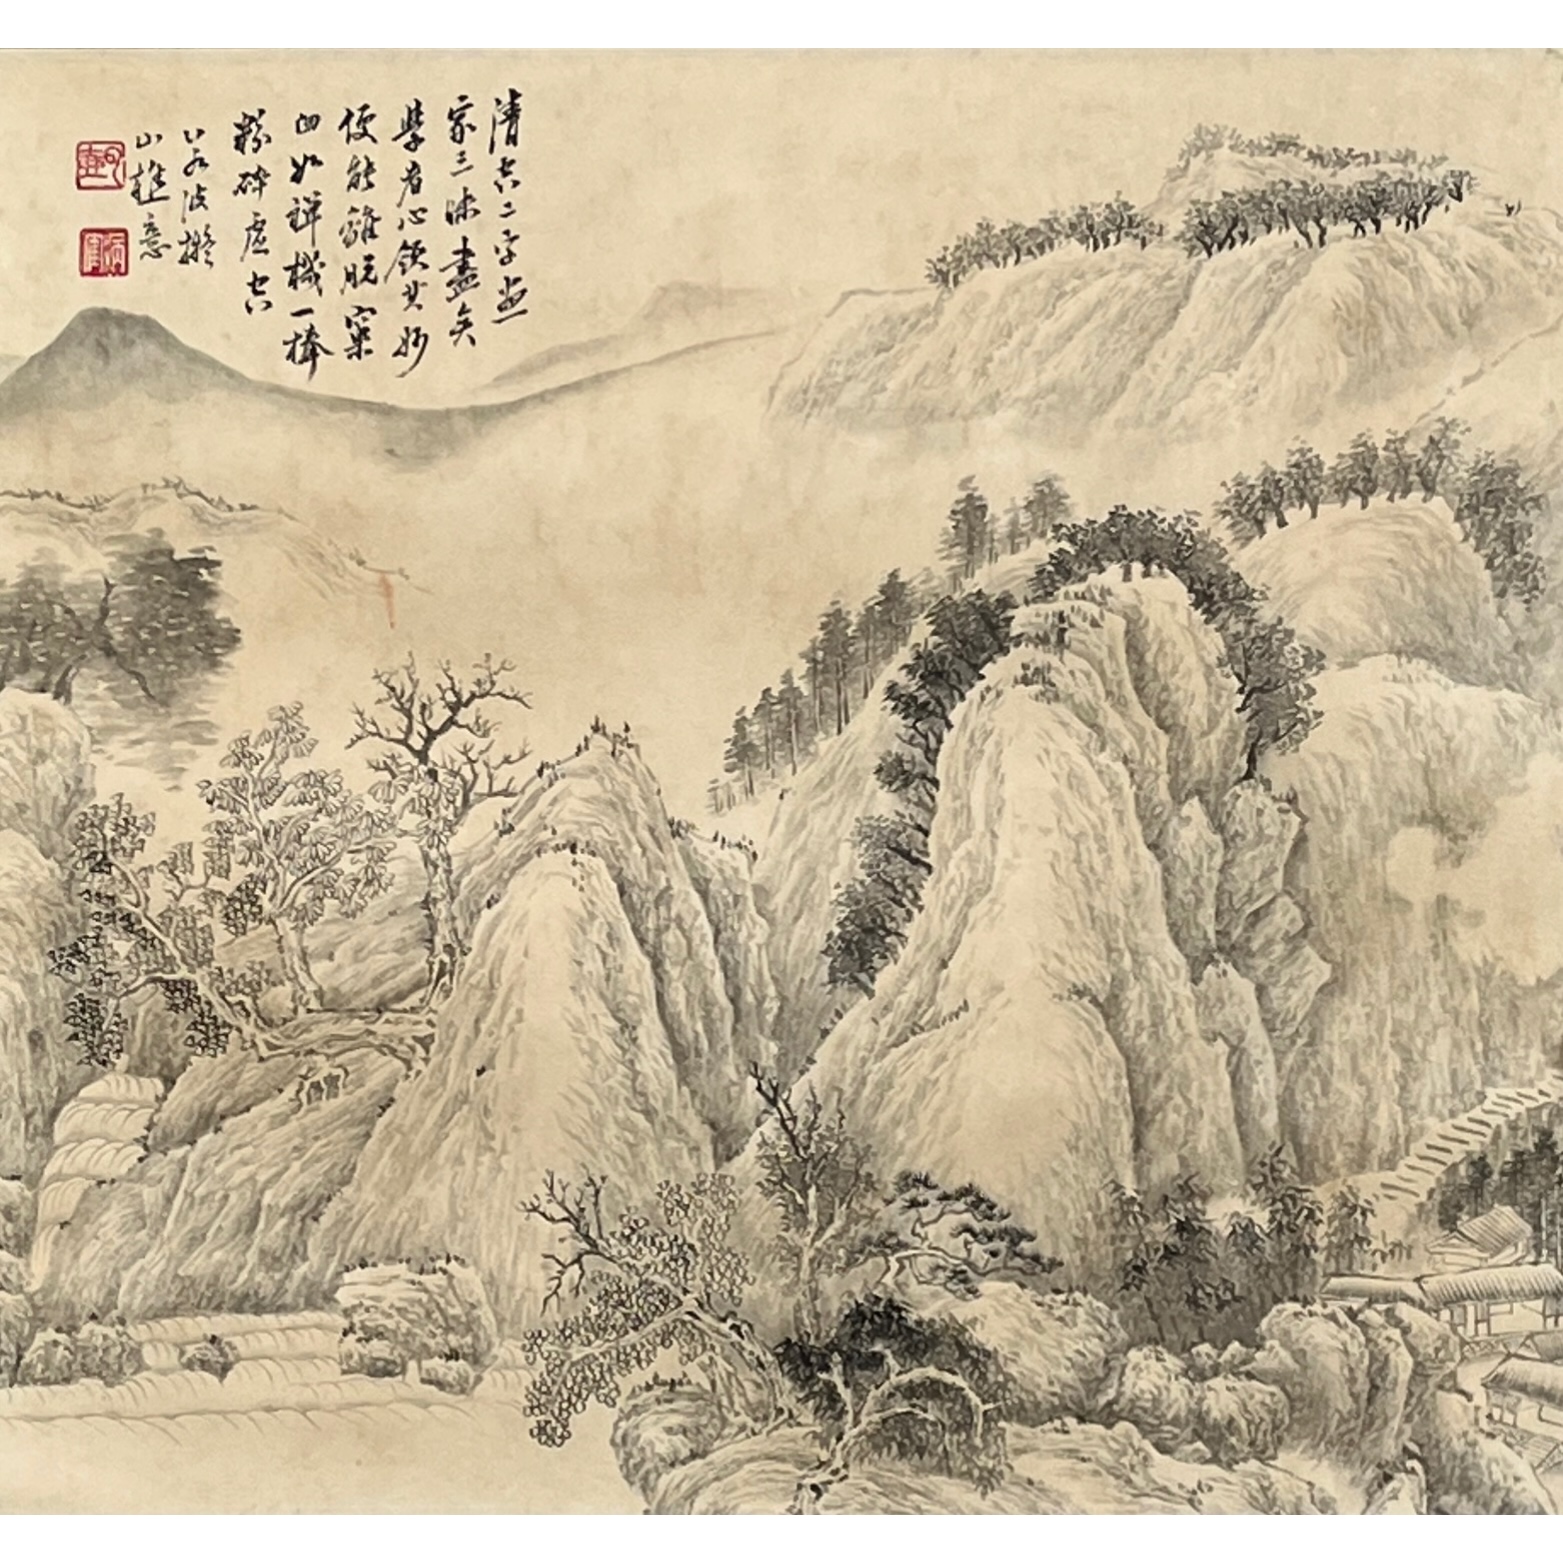 清空二字画
家三昧盡矣
學者心領其妙
便能離脫窠
臼如禪機一棒
粉碎虛空
以波擬
山樵意